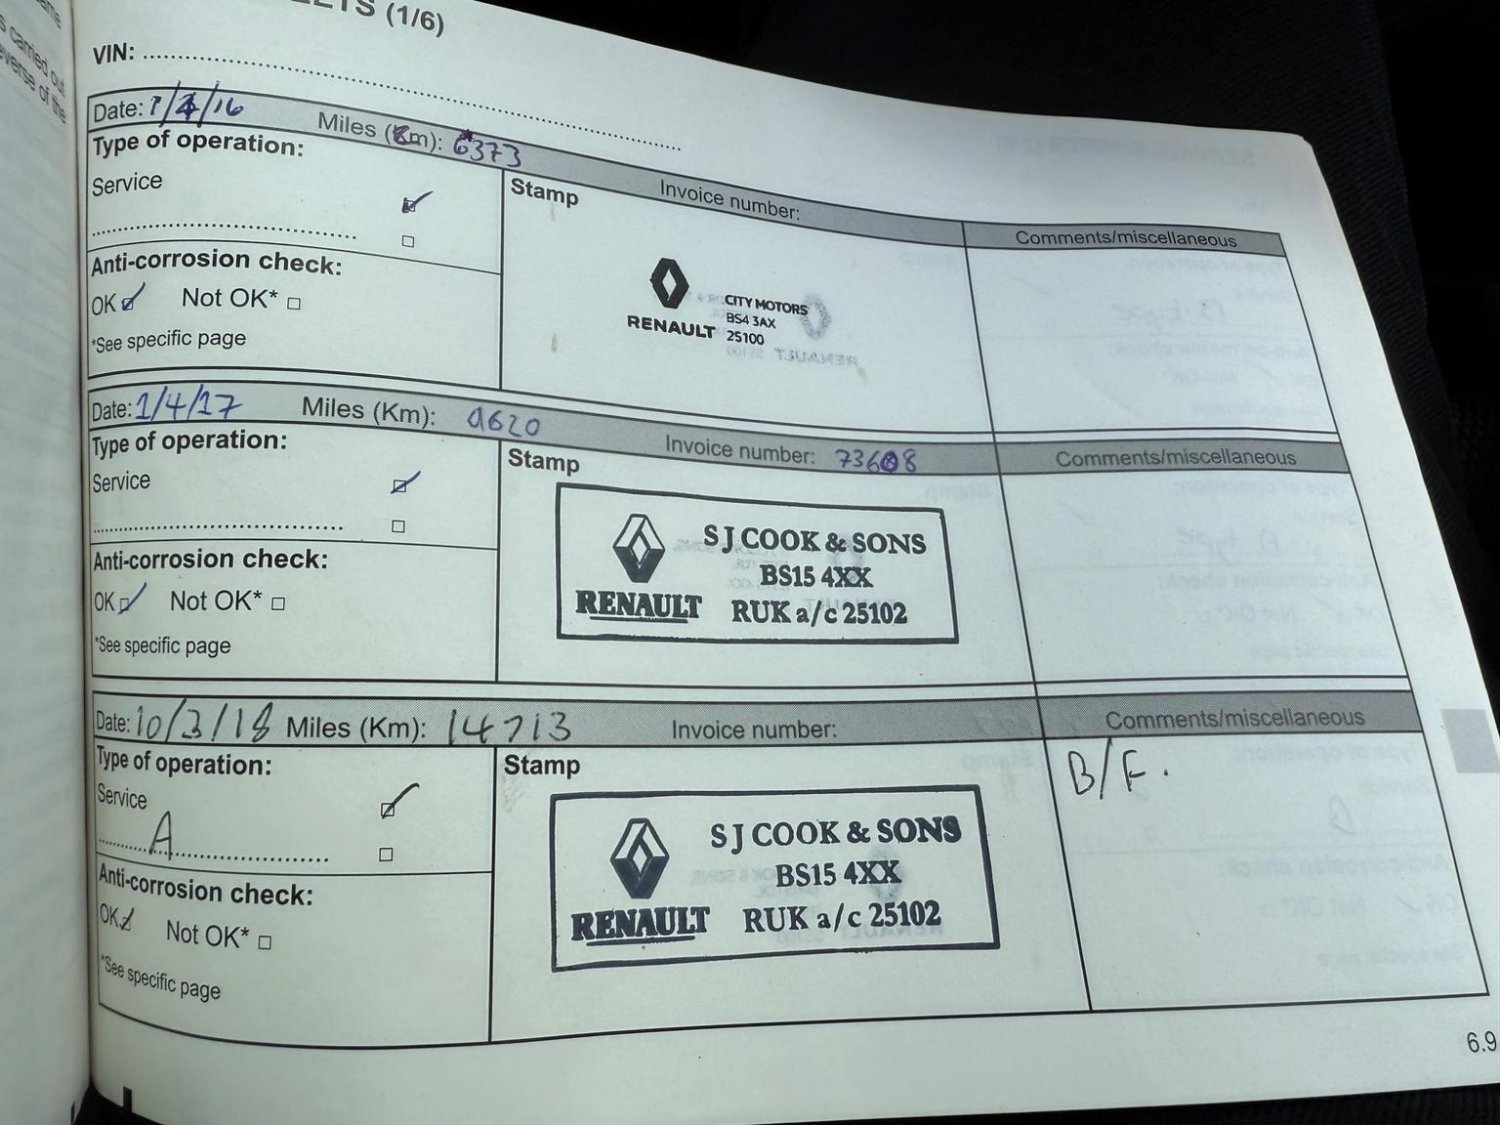 (1/6)
VIN:
Date: 1/4/16 Miles (Km): 6373
Type of operation:
Service
Anti-corrosion check:
OK Not OK*
*See specific page
Stamp
Invoice number:
Comments/miscellaneous
RENAULT
CITY MOTORS
BS4 3AX
25100
Date: 1/4/17 Miles (Km): 9620
Type of operation:
Service
Anti-corrosion check:
OK Not OK*
*See specific page
Stamp
Invoice number: 73608
Comments/miscellaneous
S J COOK & SONS
BS15 4XX
RENAULT RUK a/c 25102
Date: 10/3/18 Miles (Km): 14713
Type of operation:
Service
A
Anti-corrosion check:
OK Not OK*
*See specific page
Stamp
Invoice number:
Comments/miscellaneous
B/F.
S J COOK & SONS
BS15 4XX
RENAULT RUK a/c 25102
6.9